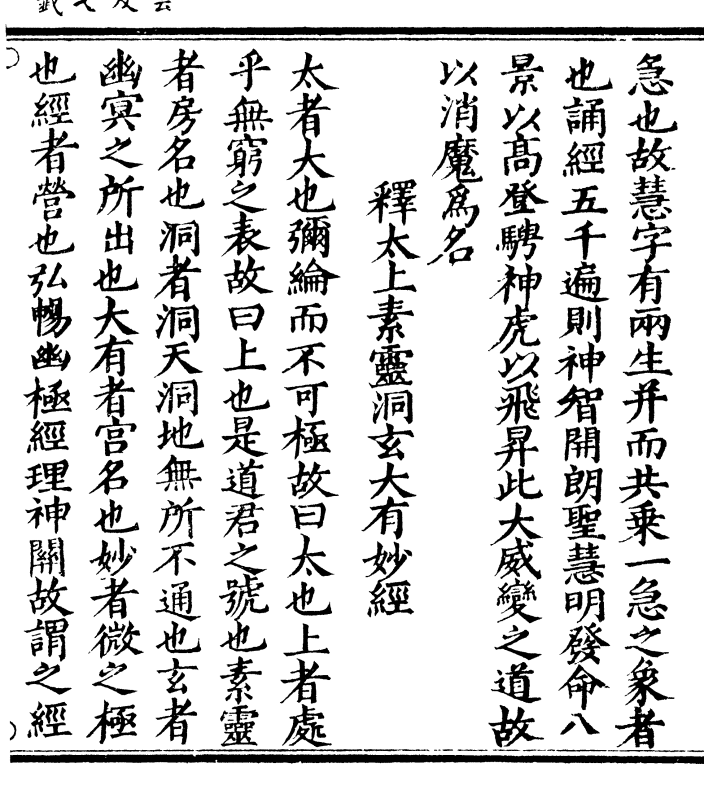 急也故慧字有兩生并而共乗一急之象者
也誦經五千遍則神智開朗聖慧明發命八
景以髙登騁神虎以飛昇此大威變之道故
以消魔爲名
釋太上素靈洞玄大有妙經
太者大也彌綸而不可極故曰太也上者處
乎無窮之表故曰上也是道君之號也素靈
者房名也洞者洞天洞地無所不通也玄者
幽㝠之所出也大有者宫名也妙者微之極
也經者營也弘暢幽極經理神關故謂之經